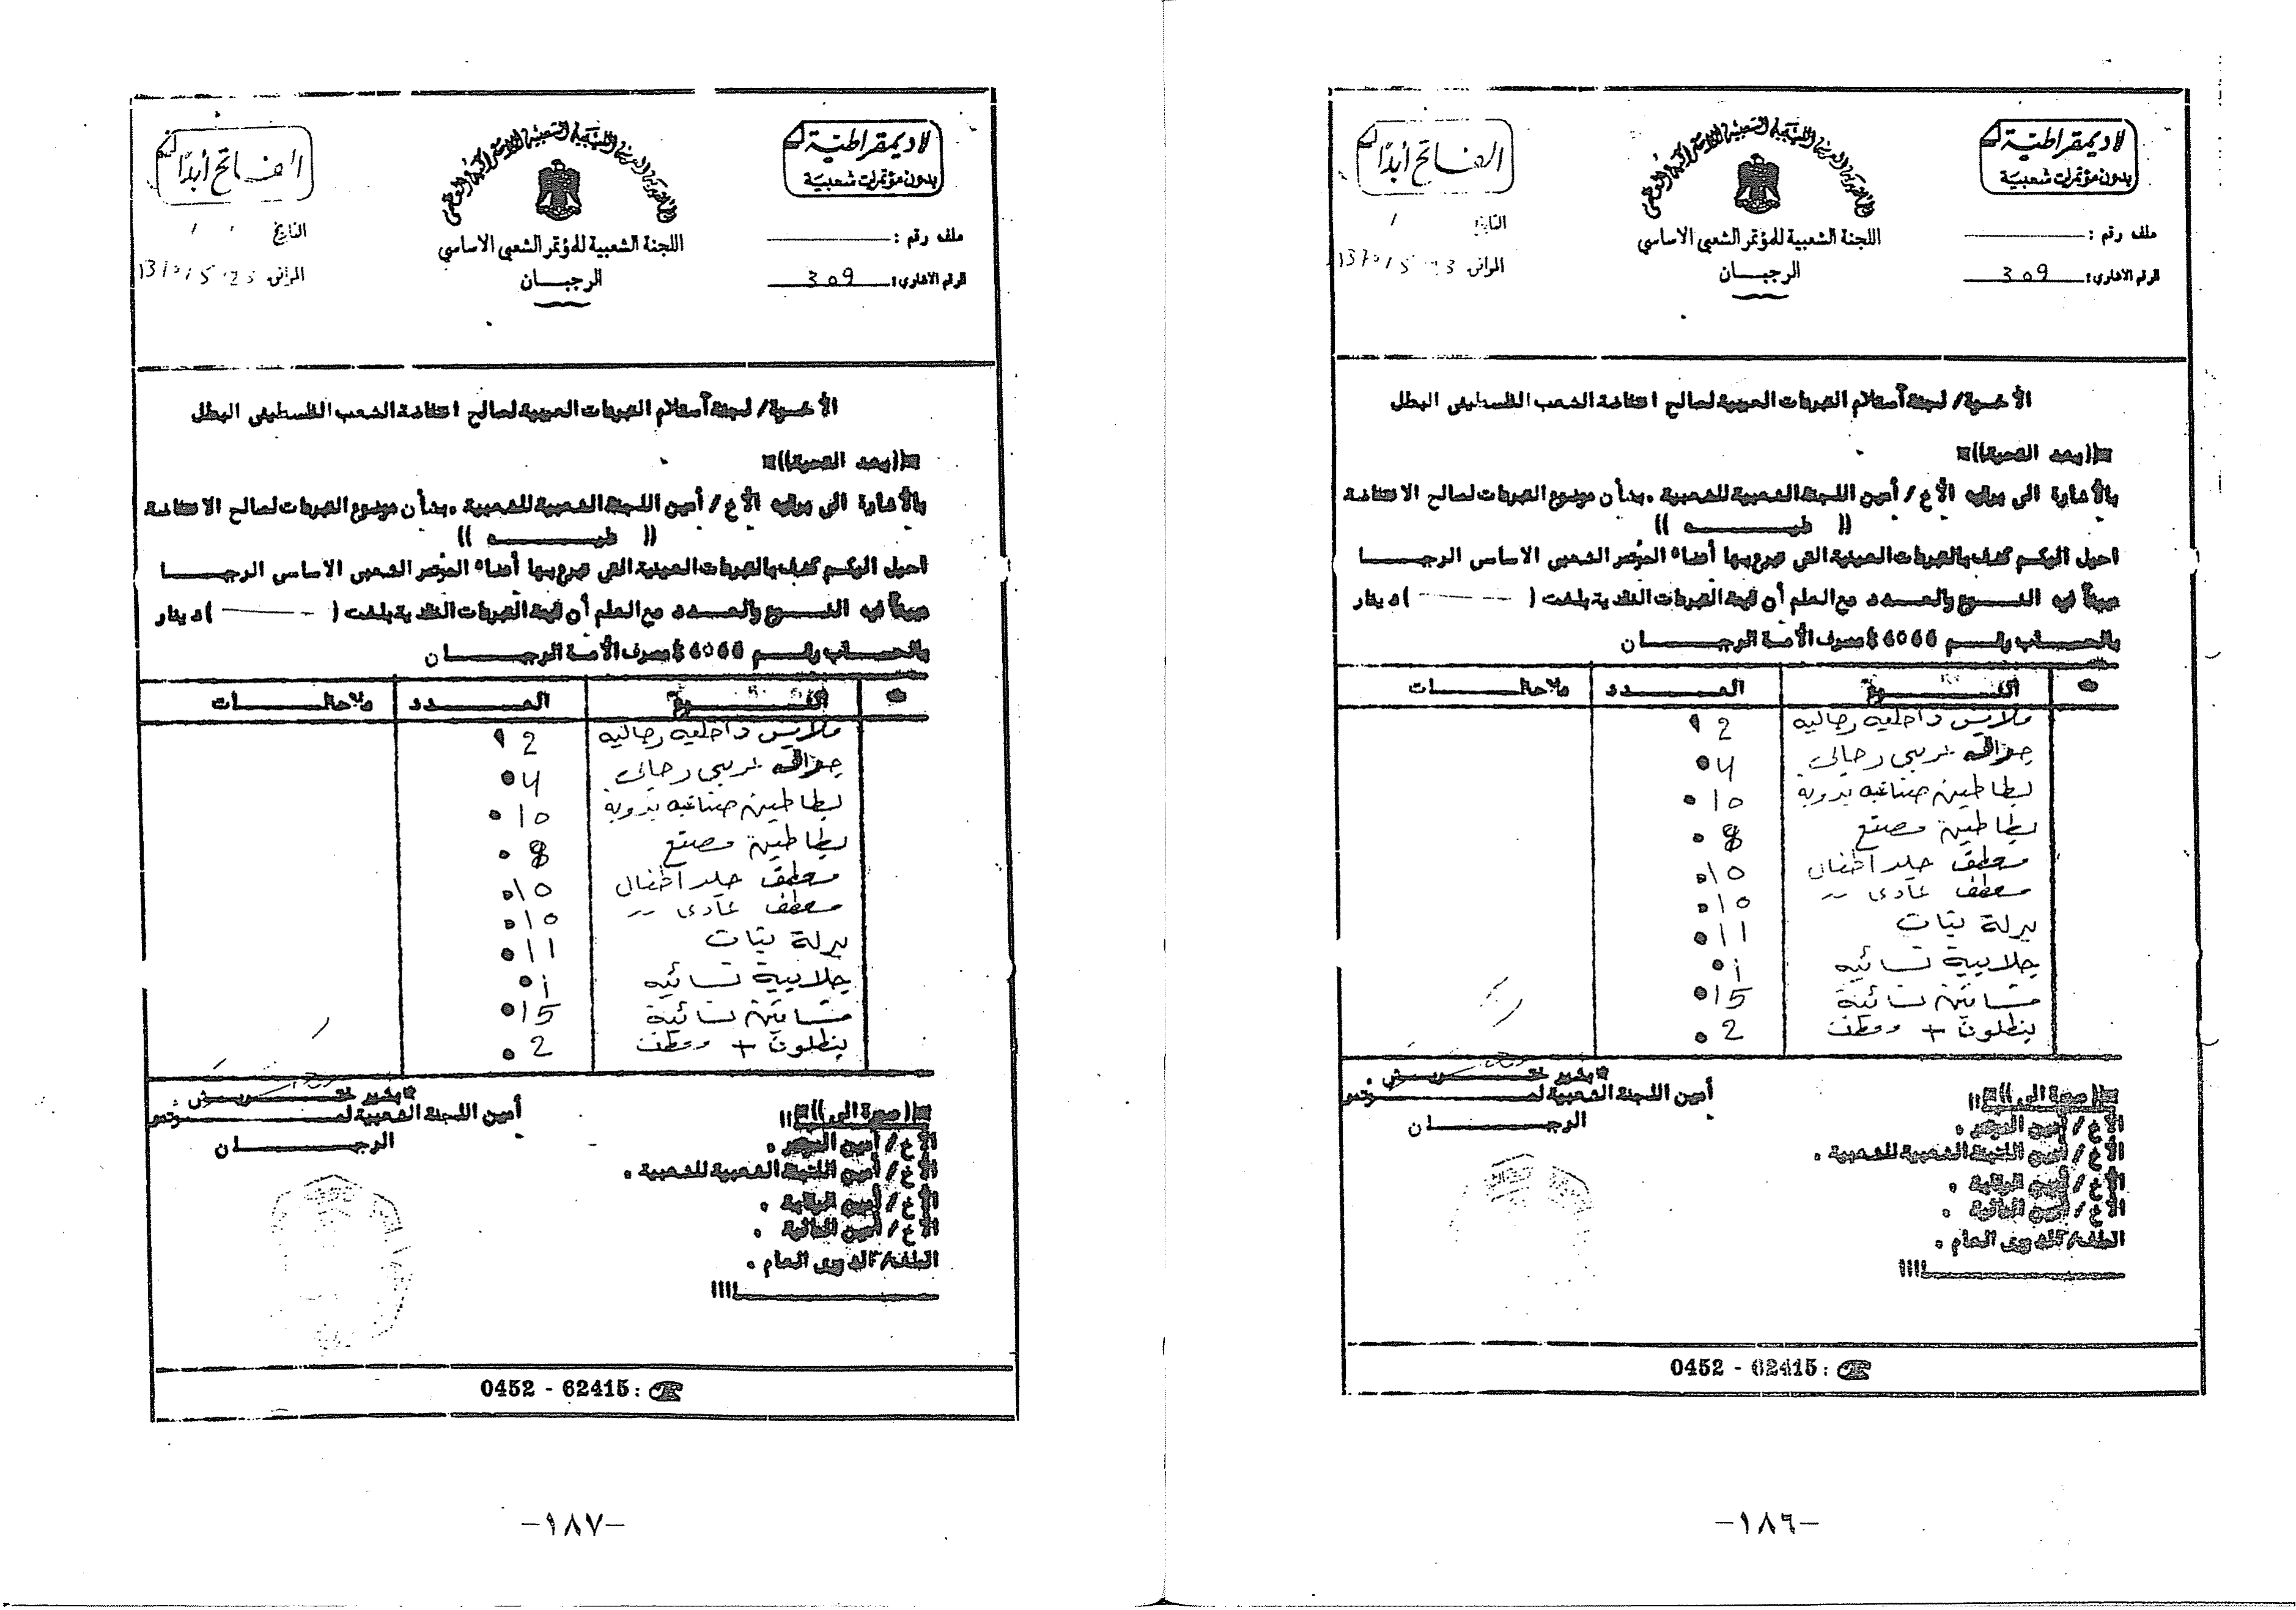 لا ديمقراطية
بدون مؤتمرات شعبية
الفاتح أبدًا
الجماهيرية العربية الليبية الشعبية الاشتراكية العظمى
اللجنة الشعبية للمؤتمر الشعبي الاساسي
الرجبــان
ملف رقم :
الرقم الاشاري: 309
التاريخ / /
الأخوة/ لجنة أستلام التبرعات العينية لصالح انتفاضة الشعب الفلسطيني البطل
((بعد التحية))
بالأشارة الى برقية الأخ / أمين اللجنة الشعبية للشعبية . بشأن موضوع التبرعات لصالح الانتفاضة
(( عليــــه ))
احيل اليكم كشف بالتبرعات العينية التي تبرع بها أعضاء المؤتمر الشعبي الاساسي الرجبـــا
مبيناً فيه النـــوع والعـــدد مع العلم أن قيمة التبرعات النقدية بلغت ( ——— ) دينار
بالحســاب رقــم مصرف الأمـة الرجبـــان
م النـــوع العـــدد ملاحظـــات
ملابس داخلية رجالية 2
عربي رجالي 4
بطاطين صناعة يدوية 10
بطاطين مصنع 8
معطف جلد اطفال 10
معطف عادي 〃 10
بدلة بنات 11
جلابية نسائية 1
فساتين نسائية 15
بنطلون + معطف 2
بشير
أمين اللجنة الشعبية لمـــؤتمر
الرجبـــان
((صورة الى))
الأخ / أمين المؤتمر .
الأخ / أمين اللجنة الشعبية للشعبية .
الأخ / أمين الرقابة .
الأخ / أمين المالية .
الملف/ الدوري العام .
0452 - 62415 :
-١٨٦-
لا ديمقراطية
بدون مؤتمرات شعبية
الفاتح أبدًا
الجماهيرية العربية الليبية الشعبية الاشتراكية العظمى
اللجنة الشعبية للمؤتمر الشعبي الاساسي
الرجبــان
ملف رقم :
الرقم الاشاري: 309
التاريخ / /
الأخوة/ لجنة أستلام التبرعات العينية لصالح انتفاضة الشعب الفلسطيني البطل
((بعد التحية))
بالأشارة الى برقية الأخ / أمين اللجنة الشعبية للشعبية . بشأن موضوع التبرعات لصالح الانتفاضة
(( عليــــه ))
احيل اليكم كشف بالتبرعات العينية التي تبرع بها أعضاء المؤتمر الشعبي الاساسي الرجبـــا
مبيناً فيه النـــوع والعـــدد مع العلم أن قيمة التبرعات النقدية بلغت ( ——— ) دينار
بالحســاب رقــم مصرف الأمـة الرجبـــان
م النـــوع العـــدد ملاحظـــات
ملابس داخلية رجالية 2
عربي رجالي 4
بطاطين صناعة يدوية 10
بطاطين مصنع 8
معطف جلد اطفال 10
معطف عادي 〃 10
بدلة بنات 11
جلابية نسائية 1
فساتين نسائية 15
بنطلون + معطف 2
بشير
أمين اللجنة الشعبية لمـــؤتمر
الرجبـــان
((صورة الى))
الأخ / أمين المؤتمر .
الأخ / أمين اللجنة الشعبية للشعبية .
الأخ / أمين الرقابة .
الأخ / أمين المالية .
الملف/ الدوري العام .
0452 - 62415 :
-١٨٧-